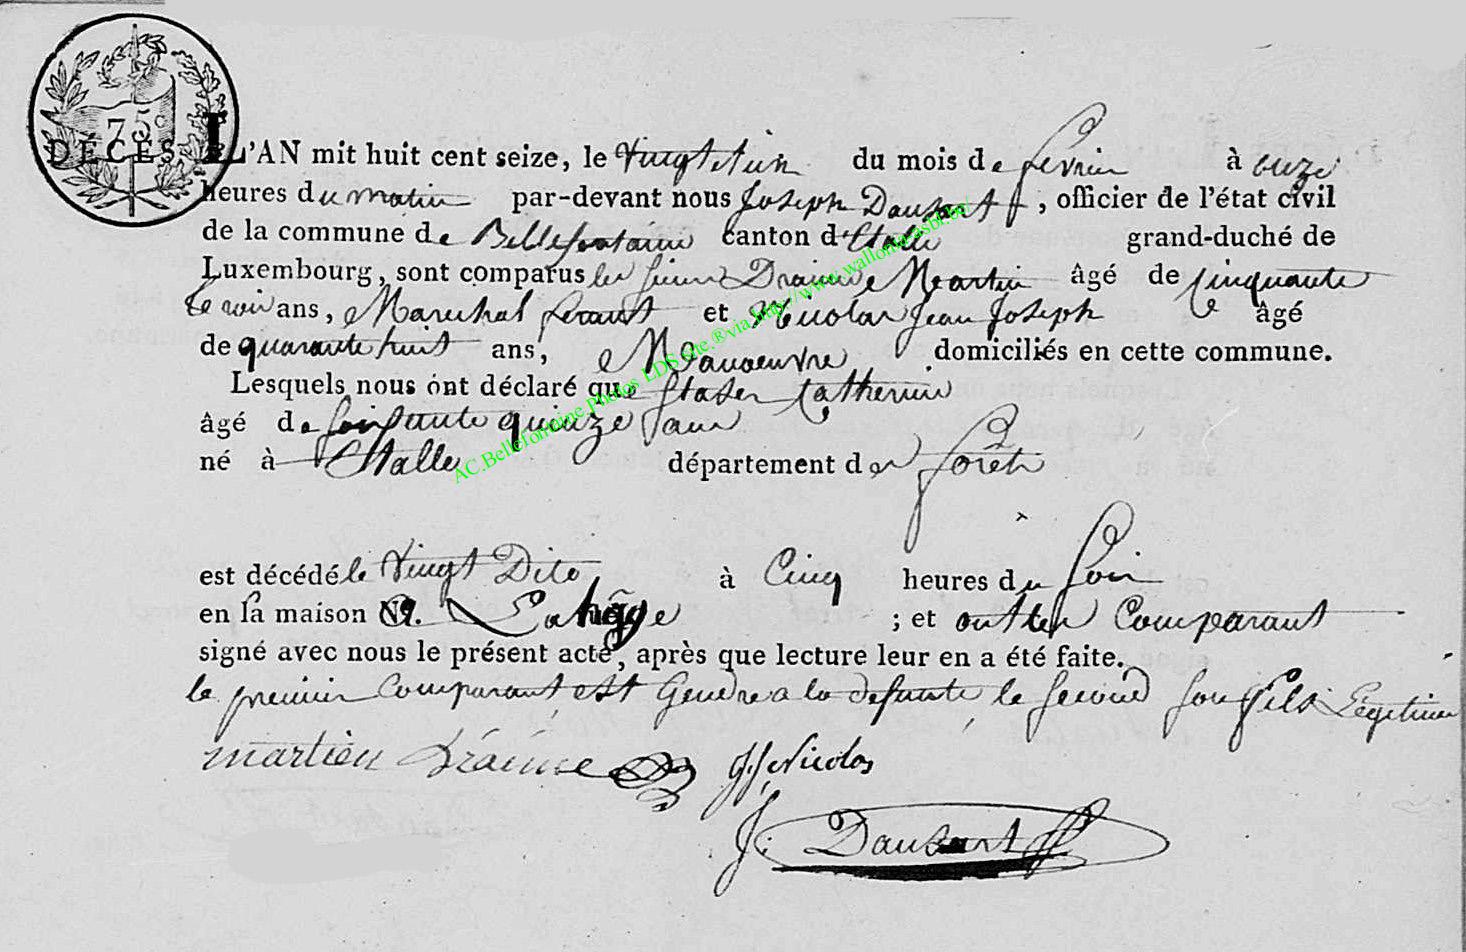 75c
DÉCÈS
L'AN mit huit cent seize, le Vingtetun du mois de fevrier à onze
heures du matin par-devant nous Joseph Dausart, officier de l'état civil
de la commune de Bellefontaine canton d'Etalle grand-duché de
Luxembourg, sont comparus les sieurs Draime Martin âgé de Cinquante
trois ans, Marechal ferant et Nicolas Jean Joseph âgé
de quarante huit ans, Manoeuvre domiciliés en cette commune.
Lesquels nous ont déclaré que Stasen Catherine
âgé de soisante quinze ans
né à Etalle département des forêts
est décédé le Vingt Dito à Cinq heures du soir
en sa maison a Lahage ; et ont les Comparant
signé avec nous le présent acte, après que lecture leur en a été faite.
le premier Comparant est Gendre a la defunte le second son fils Legitime
martien draime J J Nicolas
J: Dausart
AC.Bellefontaine Photos LDS site.®via http://www.wallonia-asbl.be/